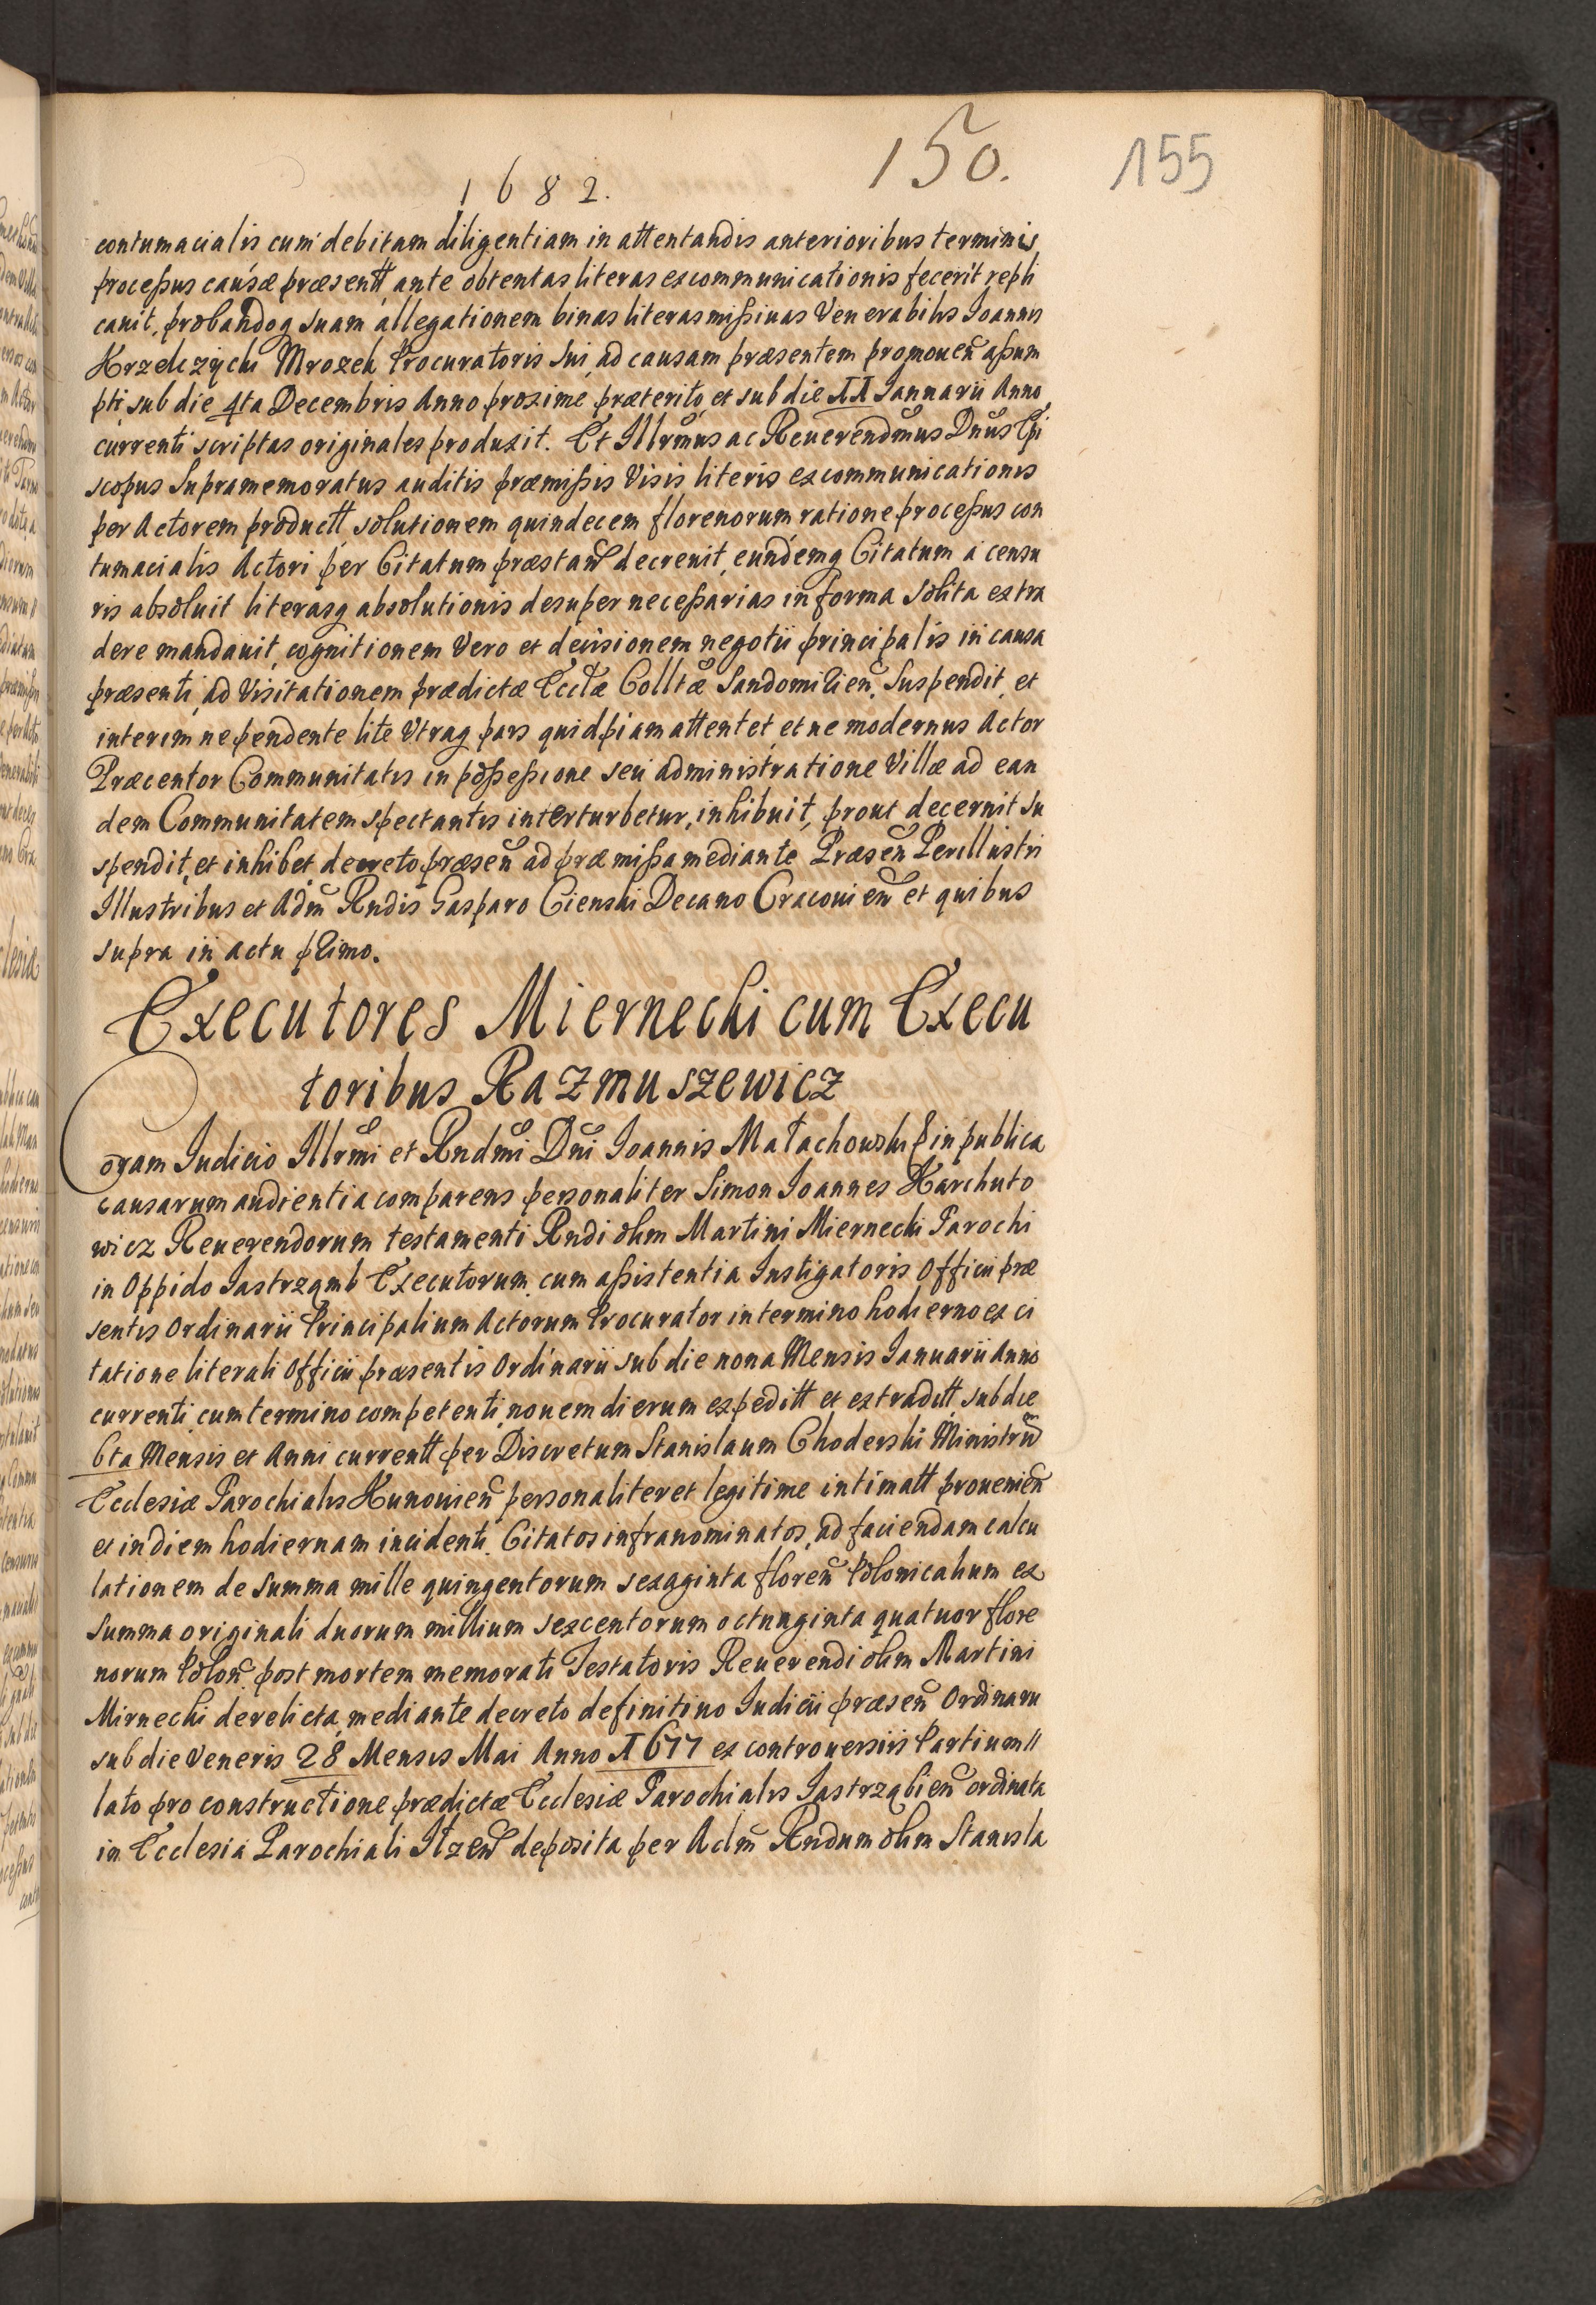 1682.
150.
155
contumacialis cum debitam diligentiam in attentandis anterioribus terminis
processus causæ præsentt ante obtentas literas excommunicationis fecerit repli
cauit, probandoq suam allegationem binas literas missiuas Venerabilis Ioannis
Mrozek Procuratoris sui ad causam præsentem promouen̄ assum
pti sub die 4ta Decembris Anno proxime præterito, et sub die 11 Ianuarii Anno
currenti scriptas originales produxit. Et Illrmus ac Reuerendmus Dnus Epi
scopus supramemoratus auditis præmissis Visis literis excommunicationis
per Actorem productt, solutionem quindecem florenorum ratione processus con
tumacialis Actori per Citatum præstan̄ decreuit, eundemq Citatum a censu
ris absoluit literasq absolutionis desuper necessarias in forma solita extra
dere mandauit, cognitionem Vero et decisionem negotii principalis in causa
præsenti, ad Visitationem prædictæ Ecclæ Colltæ Sandomirien̄, suspendit, et
interim ne pendente lite Vtraq pars quidpiam attentet, et ne modernus Actor
Præcentor Communitatis in possessione seu administratione Villæ ad ean
dem Communitatem spectantis interturbetur, inhibuit, prout decernit su
spendit, et inhibet decreto præsen̄ ad præmissa mediante Præsen̄ Perillustri
Illustribus et Adm̄ Rndis Gasparo Cienski Decano Cracouien̄ et quibus
supra in actu primo.
Executores Miernecki cum Execu
toribus Razmuszewicz
Coram Iudicio Illrmi et Rndmi Dni Ioannis Małachowski in publica
causarum audientia comparens personaliter Simon Ioannes Karchuto
wicz Reuerendorum testamenti Rndi olim Martini Miernecki Parochi
in Oppido Iastrząmb Executorum, cum assistentia Instigatoris Officii præ
sentis Ordinarii Principalium Actorum Procurator in termino hodierno ex ci
tatione literali Officii præsentis Ordinarii sub die nona Mensis Ianuarii Anno
currenti cum termino competenti, nouem dierum expeditt et extraditt, sub die
6ta Mensis et Anni currentt per Discretum Stanislaum Choderski Ministrum
Ecclesiæ Parochialis Kunouien̄ personaliter et legitime intimatt prouenien̄
et in diem hodiernam incidenti. Citatos infranominatos, ad faciendam calcu
lationem de summa mille quingentorum sexaginta floren̄ Polonicalium ex
summa originali duorum millium sexcentorum octuaginta quatuor flore
norum Polon̄. post mortem memorati Testatoris Reuerendi olim Martini
Mirnecki derelicta, mediante decreto definitiuo Iudicii præsen̄ Ordinarii
sub die Veneris 28 Mensis Mai Anno 1677 ex controuersiis Partium
lato pro constructione prædictæ Ecclesiæ Parochialis Iastrząbien̄ ordinata
in Ecclesia Parochiali Iłzen̄ deposita per Adm̄ Rndum olim Stanisla